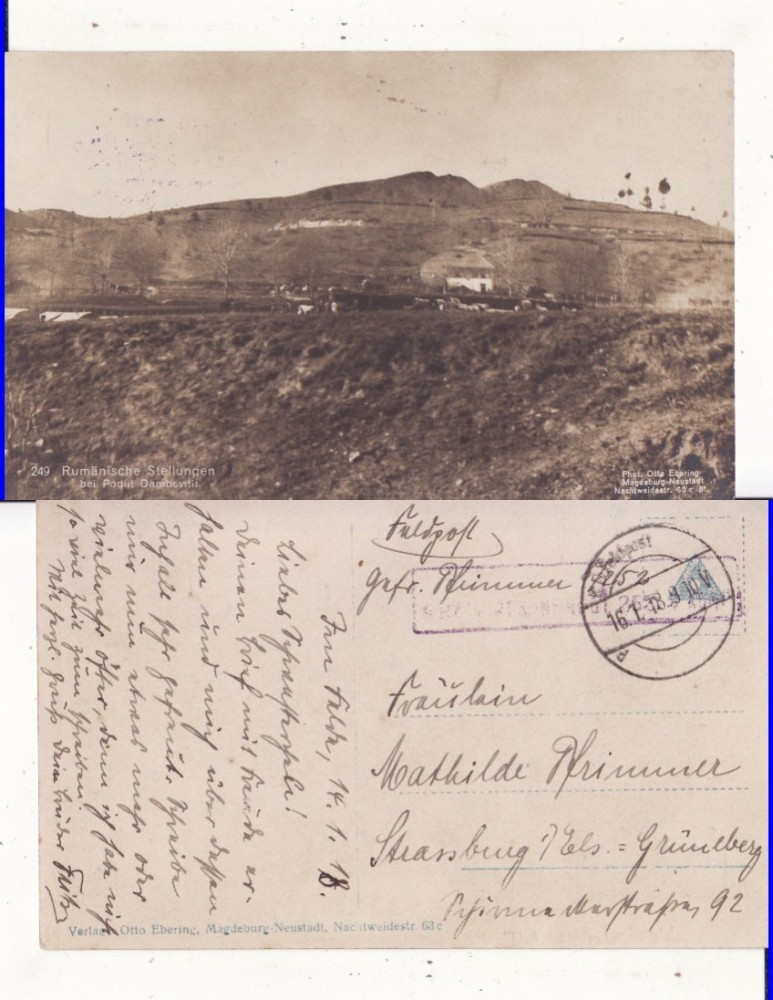 249 Rumänische Stellungen
bei Podul Dambovitii
Phot. Otto Ebering
Magdeburg-Neustadt
Nachtweidestr. 63c
Im Felde, 14. 1. 18.
Liebes Schwesterchen!
Deinen Brief mit Freude er-
halten und mich über dessen
Inhalt sehr gefreut. Schreibe
mir nun etwas mehr oder
vielmehr öfter, denn ich habe nicht
so viel Zeit zum Schreiben
Mit herzl. Gruß Dein Bruder Fritz
Feldpost
Gefr. Pfrimmer
Feldpost
252
16.1.18.9-10 V
Fräulein
Mathilde Pfrimmer
Strassburg i/Els. = Grüneberg
92
Verlag Otto Ebering, Magdeburg-Neustadt, Nachtweidestr. 63c